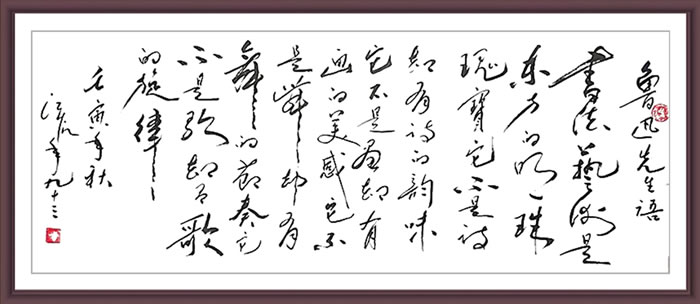 鲁迅先生语
书法藝术是
东方的明珠
瑰寶它不是诗
却有诗的韵味
它不是画却有
画的美感它不
是舞却有
舞的节奏它
不是歌却有歌
的旋律
壬寅年秋
年九十三